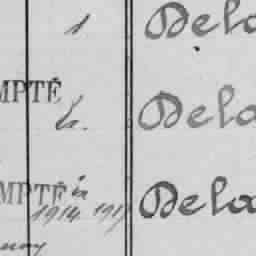 1 Dela
MPTÉ
h. Dela
MPTÉ in
1914 1917 Dela